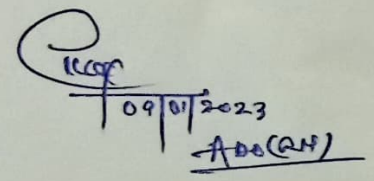 09/01/2023
ADO(RH)